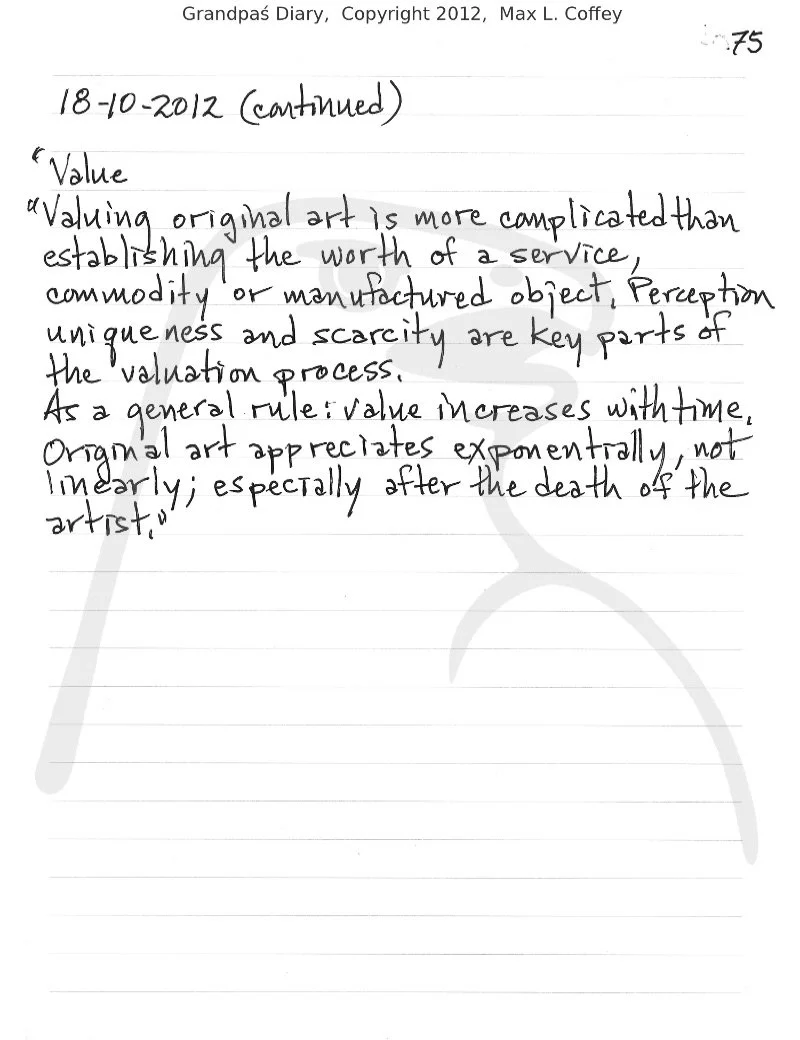 Grandpaś Diary, Copyright 2012, Max L. Coffey
75
18-10-2012 (continued)
"Value
"Valuing original art is more complicated than
establishing the worth of a service,
commodity or manufactured object. Perception
uniqueness and scarcity are key parts of
the valuation process.
As a general rule: value increases with time.
Original art appreciates exponentially, not
linearly; especially after the death of the
artist."